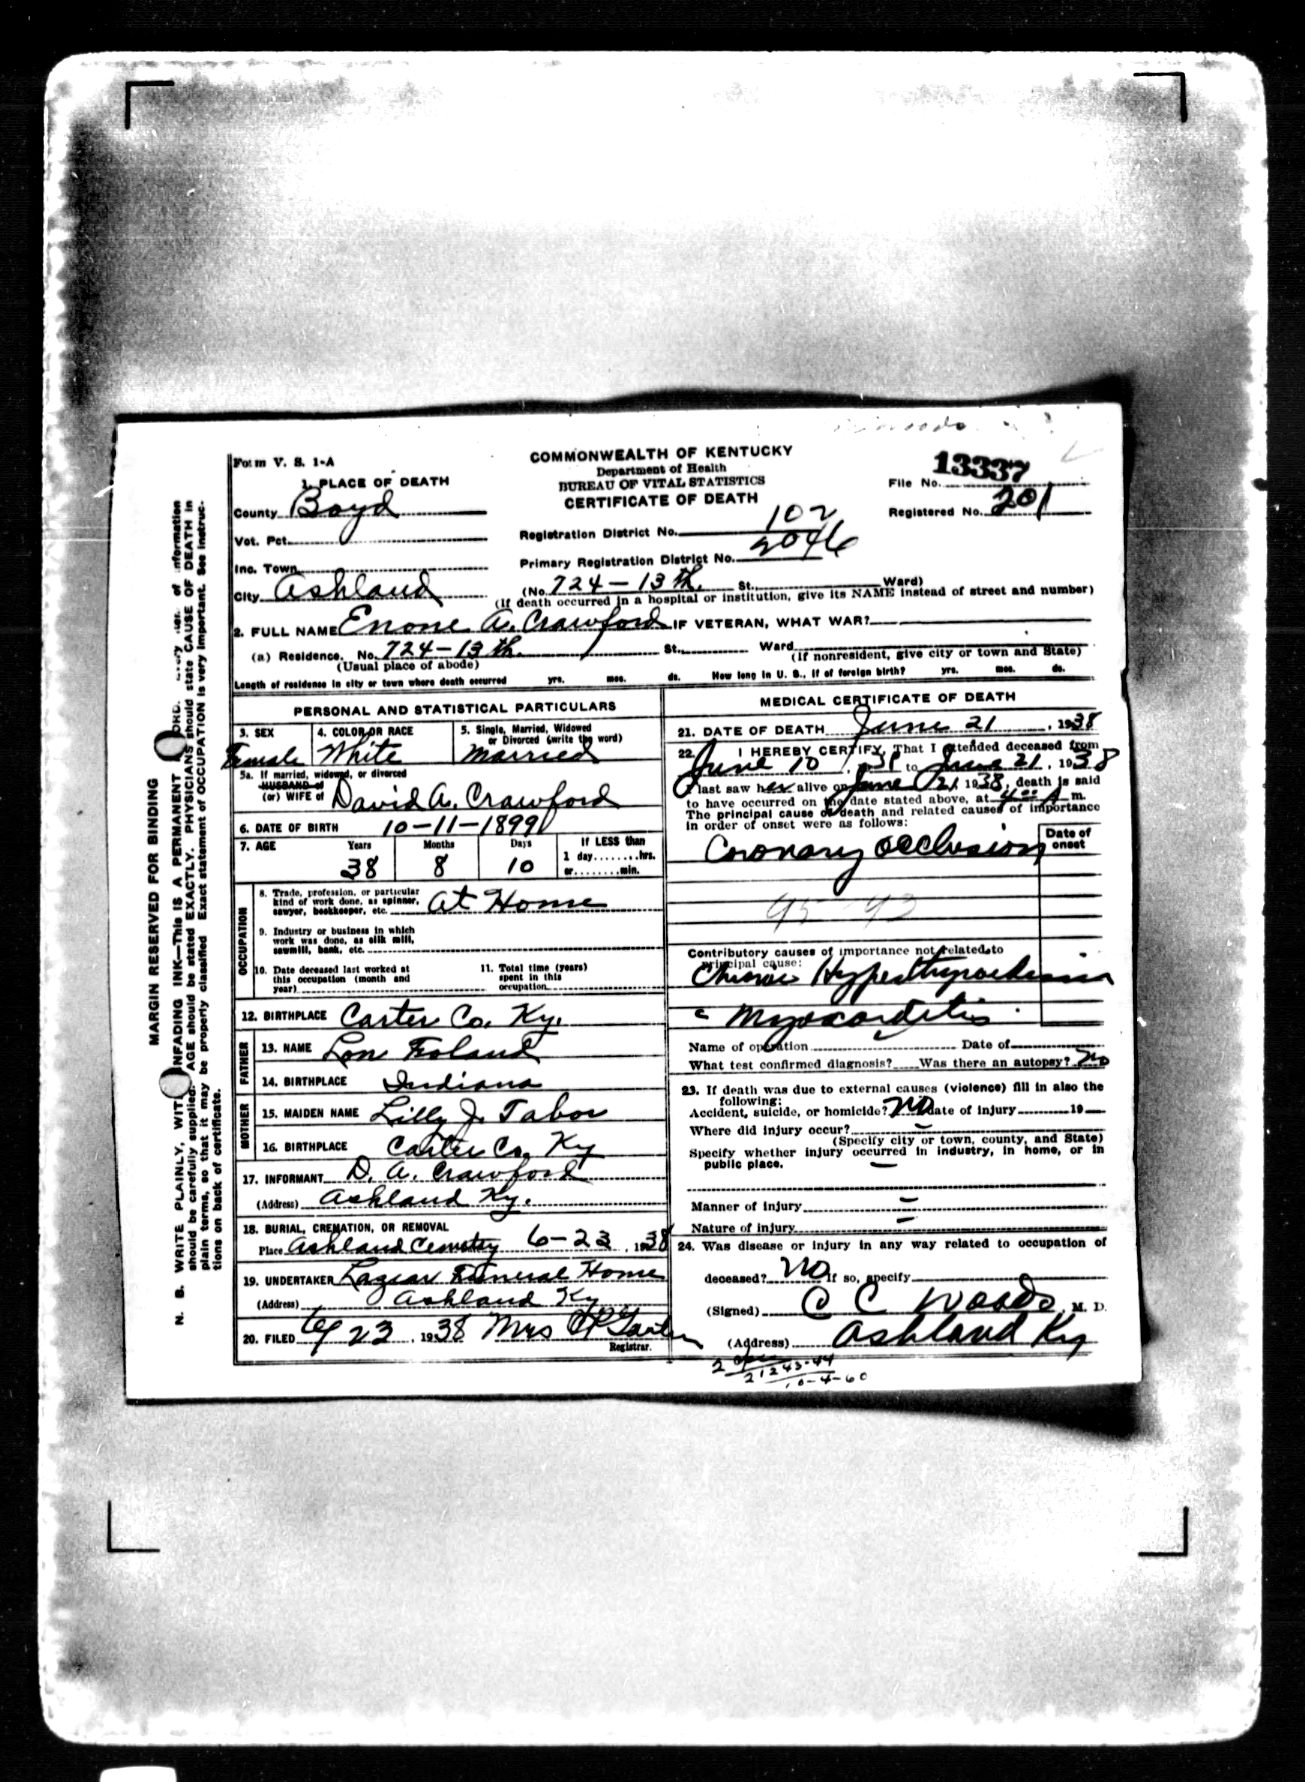 Form V. S. 1-A
COMMONWEALTH OF KENTUCKY
Department of Health
BUREAU OF VITAL STATISTICS
CERTIFICATE OF DEATH
File No. 13337
Registered No. 201
1. PLACE OF DEATH
County Boyd
Vot. Pct.
Inc. Town
City Ashland
Registration District No. 102
Primary Registration District No. 2046
(No. 724-13th St. Ward)
(If death occurred in a hospital or institution, give its NAME instead of street and number)
2. FULL NAME Enone A. Crawford IF VETERAN, WHAT WAR?
(a) Residence. No. 724-13th. St. Ward
(Usual place of abode) (If nonresident, give city or town and State)
Length of residence in city or town where death occurred yrs. mos. ds. How long in U. S., if of foreign birth? yrs. mos. ds.
PERSONAL AND STATISTICAL PARTICULARS
3. SEX 4. COLOR OR RACE 5. Single, Married, Widowed
or Divorced (write the word)
Female White Married
5a. If married, widowed, or divorced
HUSBAND of
(or) WIFE of David A. Crawford
6. DATE OF BIRTH 10-11-1899
7. AGE Years Months Days If LESS than
1 day........hrs.
or........min.
38 8 10
OCCUPATION
8. Trade, profession, or particular
kind of work done, as spinner,
sawyer, bookkeeper, etc. At Home
9. Industry or business in which
work was done, as silk mill,
sawmill, bank, etc.
10. Date deceased last worked at
this occupation (month and
year)
11. Total time (years)
spent in this
occupation
12. BIRTHPLACE Carter Co. Ky.
FATHER
13. NAME Lon Foland
14. BIRTHPLACE Indiana
MOTHER
15. MAIDEN NAME Lilly J. Tabor
16. BIRTHPLACE Carter Co. Ky
17. INFORMANT D. A. Crawford
(Address) Ashland Ky.
18. BURIAL, CREMATION, OR REMOVAL
Place Ashland Cemetry 6-23, 1938
19. UNDERTAKER Lazear Funeral Home
(Address) Ashland Ky
20. FILED 6/23, 1938 Mrs
Registrar.
MEDICAL CERTIFICATE OF DEATH
21. DATE OF DEATH June 21, 1938
22. I HEREBY CERTIFY, That I attended deceased from
June 10, 1938 to June 21, 1938
I last saw her alive on June 21, 1938, death is said
to have occurred on the date stated above, at 4:00 A m.
The principal cause of death and related causes of importance
in order of onset were as follows:
Date of
onset
Coronary occlusion
Contributory causes of importance not related to
principal cause:
Chronic Hyperthyroidism
c Myocarditis
Name of operation Date of
What test confirmed diagnosis? Was there an autopsy? No
23. If death was due to external causes (violence) fill in also the
following:
Accident, suicide, or homicide? No Date of injury 19
Where did injury occur? –
(Specify city or town, county, and State)
Specify whether injury occurred in industry, in home, or in
public place. –
Manner of injury –
Nature of injury –
24. Was disease or injury in any way related to occupation of
deceased? No If so, specify
(Signed) C C Woods, M. D.
(Address) Ashland Ky
21243-44
10-4-60
MARGIN RESERVED FOR BINDING
N. B. WRITE PLAINLY, WITH UNFADING INK—This IS A PERMANENT RECORD. Every item of information
should be carefully supplied. AGE should be stated EXACTLY. PHYSICIANS should state CAUSE OF DEATH in
plain terms, so that it may be properly classified. Exact statement of OCCUPATION is very important. See instruc-
tions on back of certificate.